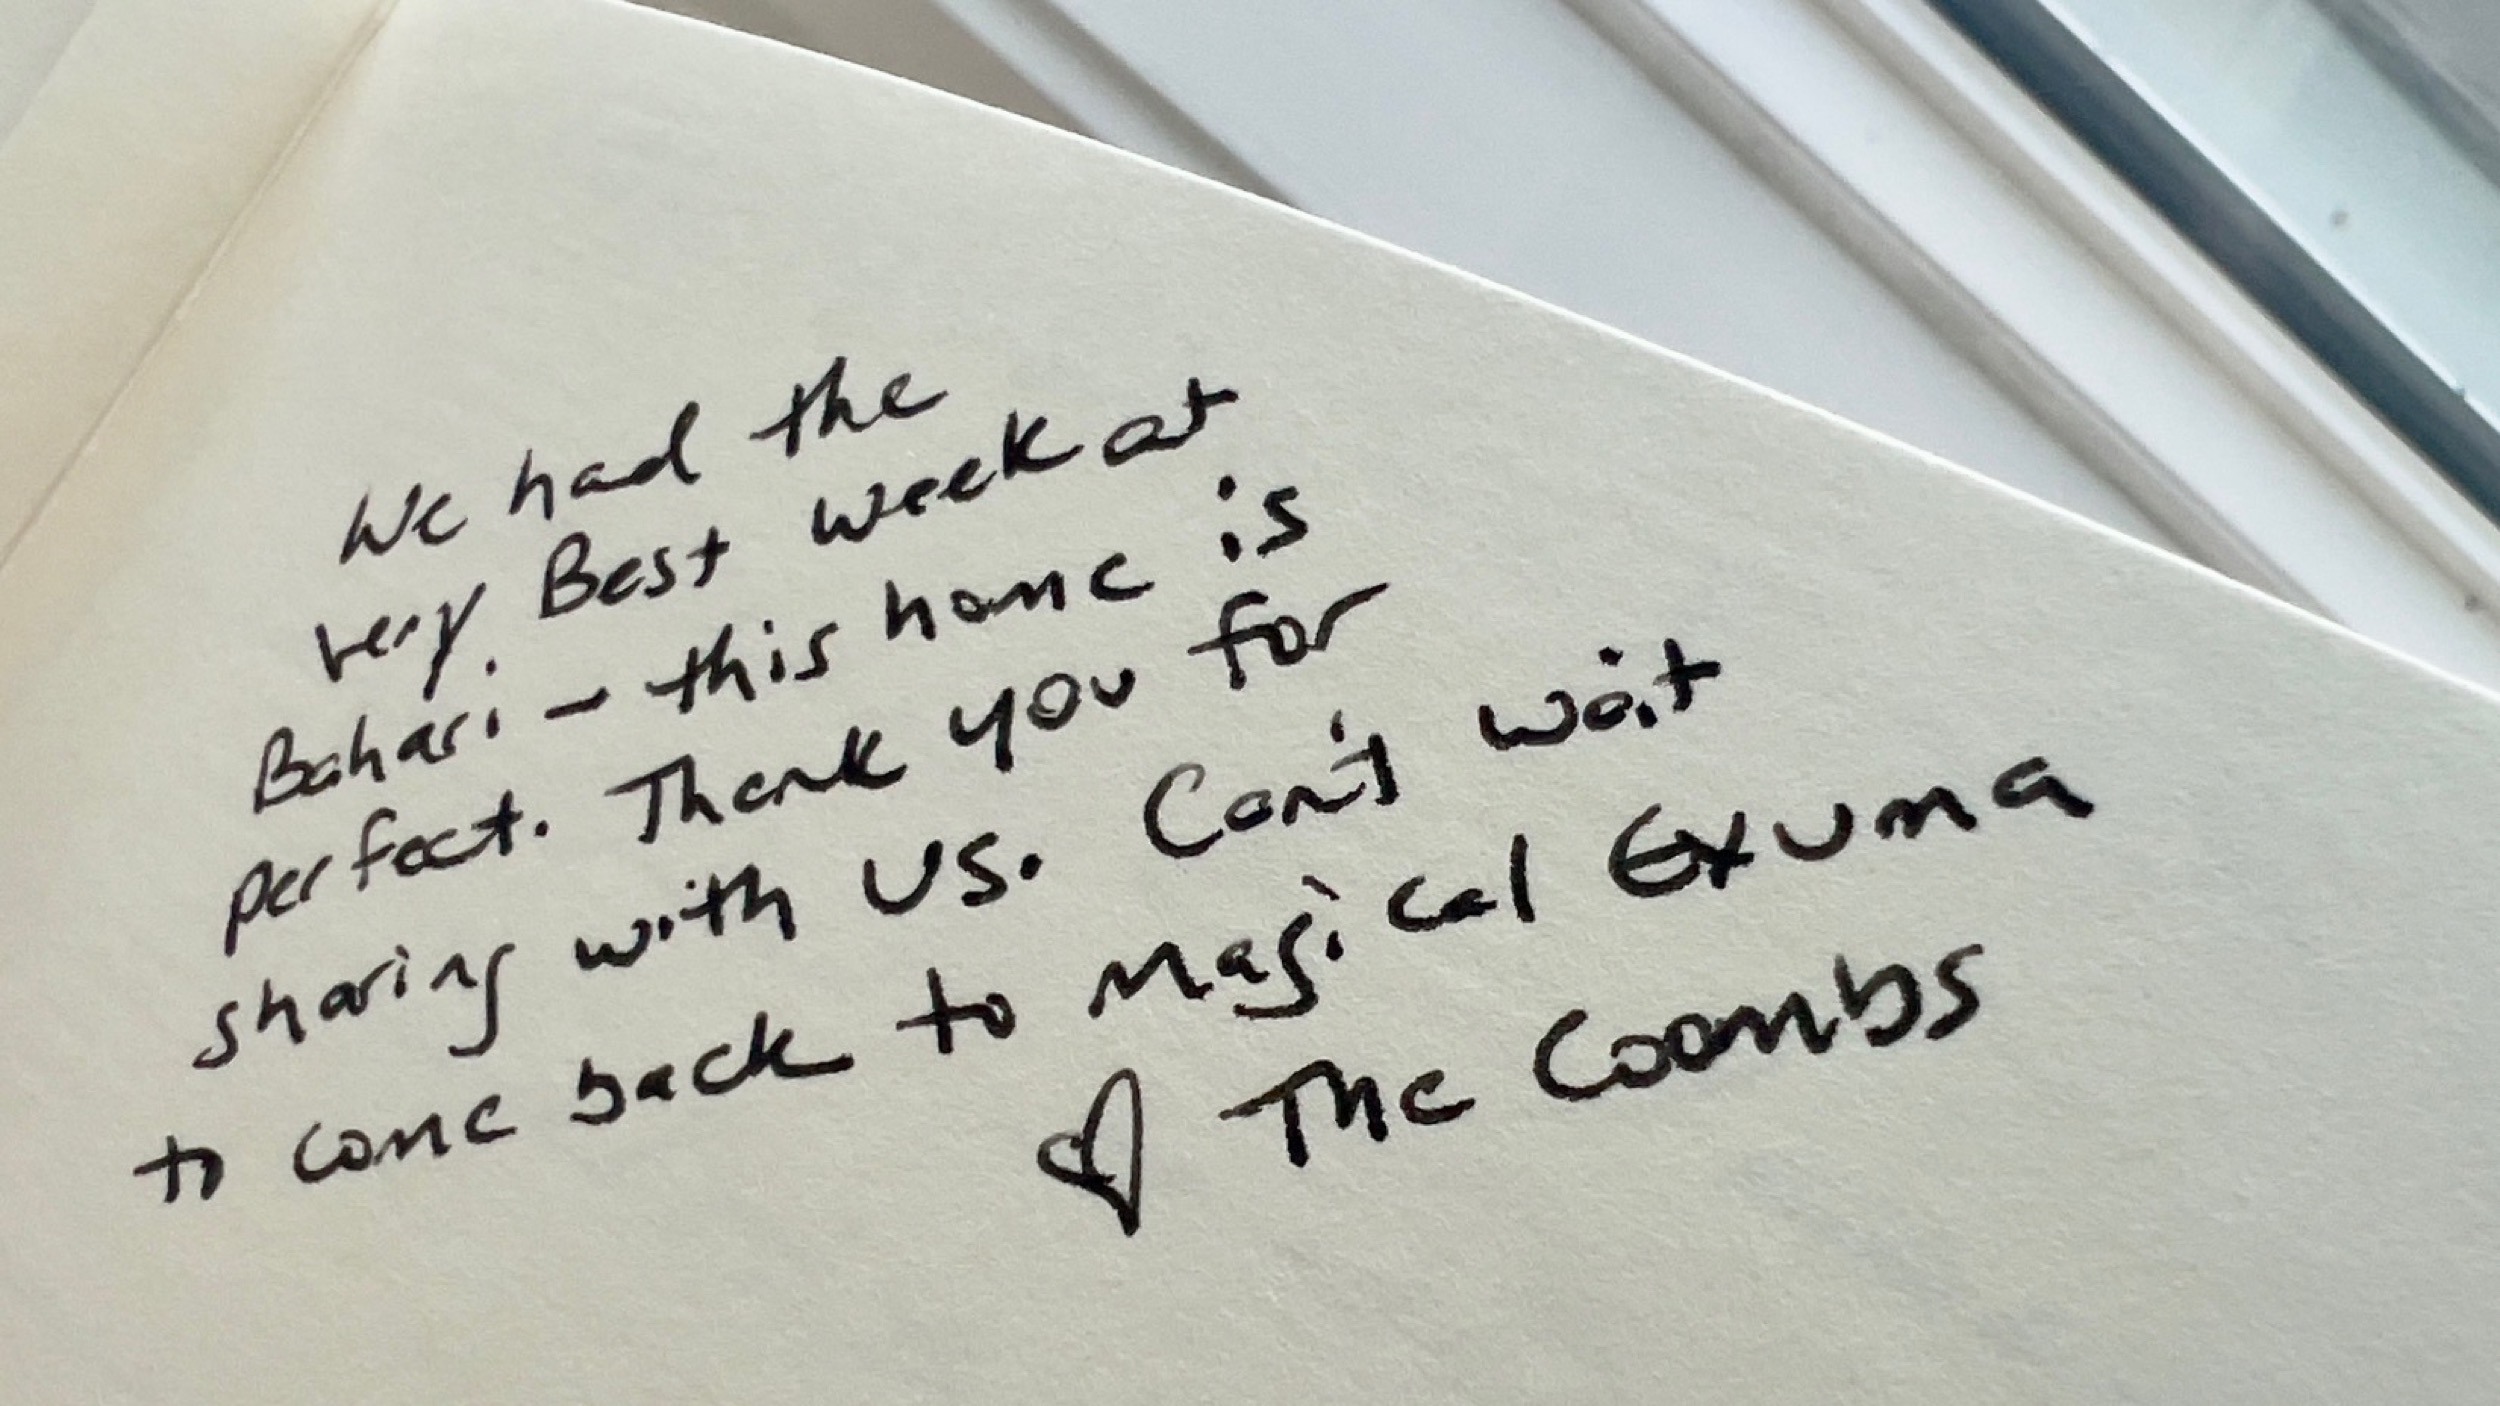 We had the
very Best week at
Bahari - this home is
perfect. Thank you for
sharing with us. Can't wait
to come back to magical Exuma
♡ The Coombs